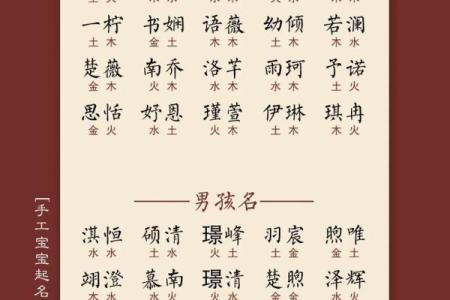 一柠 书娴 语薇 幼倾 若澜
土木 金土 木木 土火 木水
楚薇 南乔 洛芊 雨珂 予诺
木木 火木 水木 水木 土火
思恬 妤恩 瑾萱 伊琳 琪冉
金火 水土 火木 土木 木火
男孩名
淇恒 硕清 璟峰 羽宸 煦唯
水水 土水 火土 土金 火土
翊澄 慕南 璟清 楚煦 泽辉
木水 水火 火水 金火 水火
[手工宝宝起名